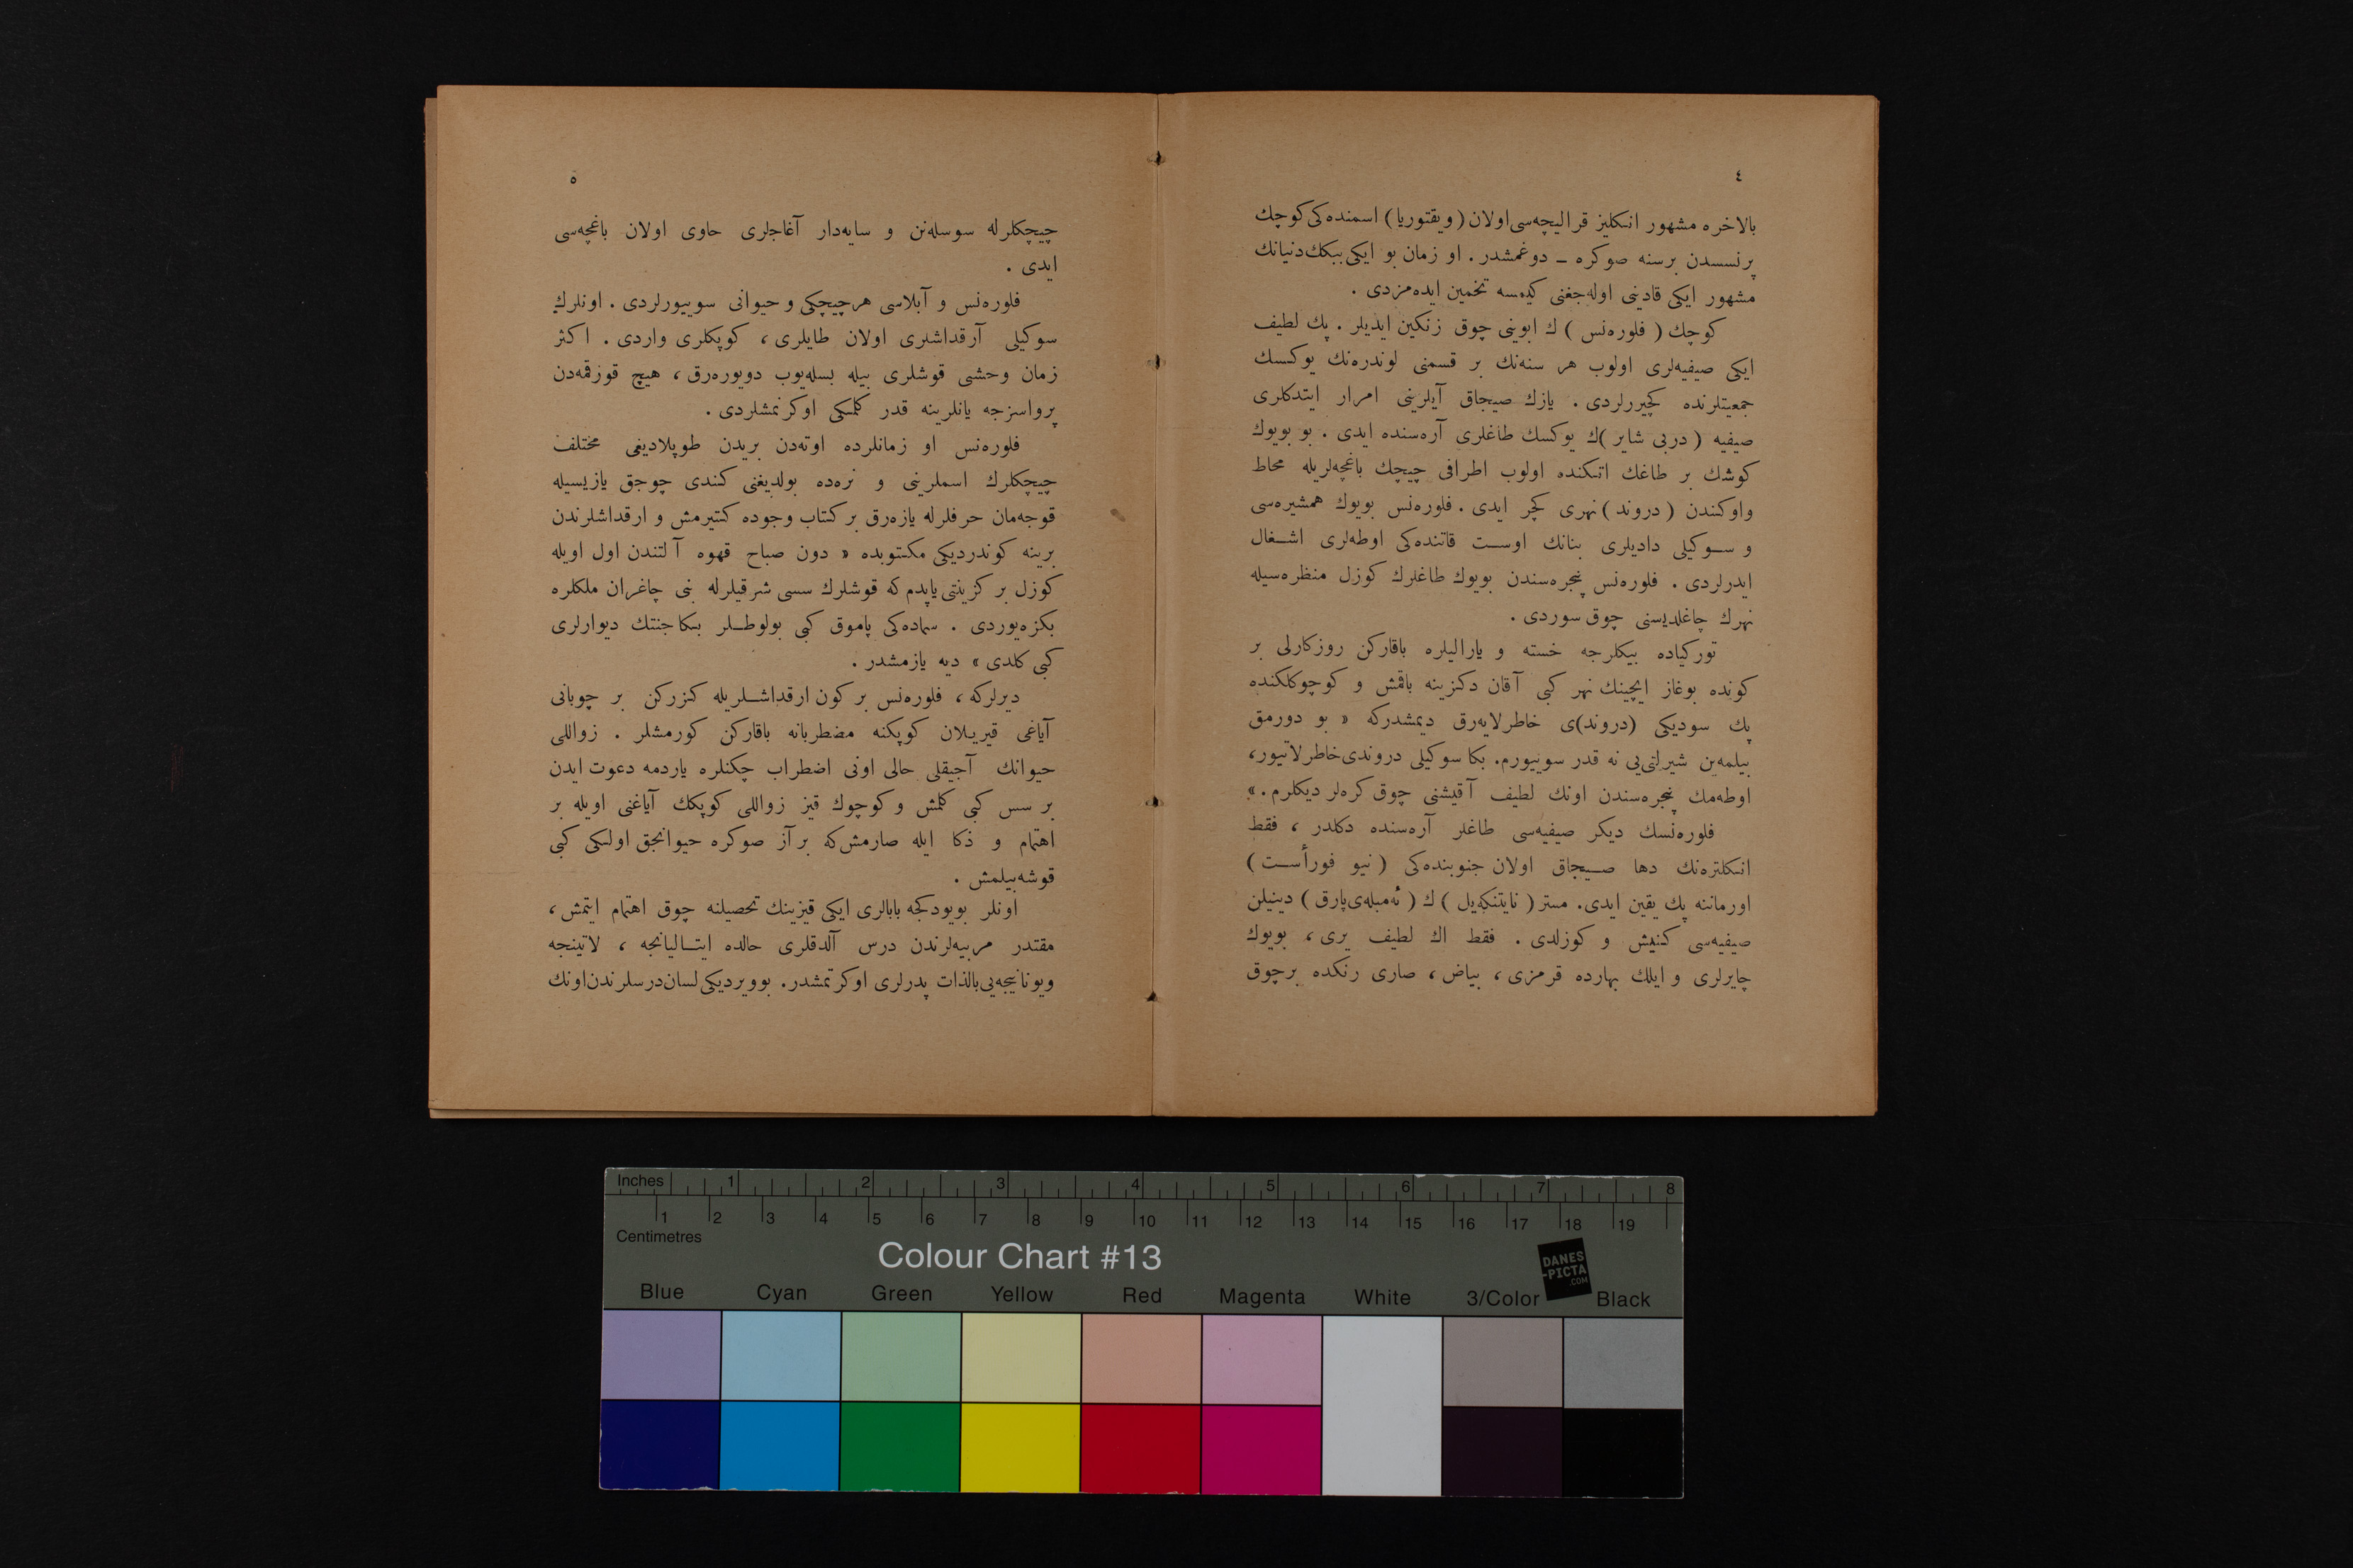 ٤
بالاخره مشهور انكليز قراليچه‌سی اولان (ويقتوريا) اسمنده‌كی كوچك
پرنسسدن برسنه صوكره ـ دوغمشدر . او زمان بو ايكی ببكك دنيانك
مشهور ايكی قادنی اوله‌جغنی كيمسه تخمين ايده‌مزدی .
كوچك ( فلوره‌نس ) ك ابوينی چوق زنكين ايديلر . پك لطيف
ايكی صيفيه‌لری اولوب هر سنه‌نك بر قسمنی لوندره‌نك يوكسك
جمعيتلرنده كچيررلردی . يازك صيجاق آيلرينی امرار ايتدكلری
صيفيه ( دربی شاير )ك يوكسك طاغلری آره‌سنده ايدی . بو بويوك
كوشك بر طاغك اتكنده اولوب اطرافی چيچك باغچه‌لريله محاط
واوكندن ( دروند ) نهری كچر ايدی . فلوره‌نس بويوك همشيره‌سی
و سوكيلی داديلری بنانك اوست قاتنده‌كی اوطه‌لری اشغال
ايدرلردی . فلوره‌نس پنجره‌سندن بويوك طاغلرك كوزل منظره‌سيله
نهرك چاغلديسنی چوق سوردی .
توركياده بيكلرجه خسته و يارالیلره باقاركن روزكارلی بر
كونده بوغاز ايچينك نهر كبی آقان دكزينه باقمش و كوچوكلكنده
پك سوديكی (دروند)ی خاطرلايه‌رق ديمشدركه « بو دورمق
بيلمه‌ين شيرلتی‌يی نه قدر سوييورم. بكا سوكيلی دروندی خاطرلاتيور،
اوطه‌مك پنجره‌سندن اونك لطيف آقيشنی چوق كره‌لر ديكلرم . »
فلوره‌نسك ديكر صيفيه‌سی طاغلر آره‌سنده دكلدر ، فقط
انكلتره‌نك دها صيجاق اولان جنوبنده‌كی ( نيو فورأست )
اورماننه پك يقين ايدی. مستر ( نايتنكه‌يل ) ك ( ئه‌مبله‌ی پارق ) دينيلن
صيفيه‌سی كنيش و كوزلدی . فقط اك لطيف يری ، بويوك
چايرلری و ايلك بهارده قرمزی ، بياض ، صاری رنكده برچوق
٥
چيچكلرله سوسله‌نن و سايه‌دار آغاجلری حاوی اولان باغچه‌سی
ايدی .
فلوره‌نس و آبلاسی هرچيچكی و حيوانی سوييورلردی . اونلرك
سوكيلی آرقداشلری اولان طايلری ، كوپكلری واردی . اكثر
زمان وحشی قوشلری بيله بسله‌يوب دويوره‌رق ، هيچ قورقمه‌دن
پرواسزجه يانلرينه قدر كلمكی اوكرنمشلردی .
فلوره‌نس او زمانلرده اوته‌دن بريدن طوپلاديغی مختلف
چيچكلرك اسملرينی و نره‌ده بولديغنی كندی چوجق يازيسيله
قوجه‌مان حرفلرله يازه‌رق بر كتاب وجوده كتيرمش و ارقداشلرندن
برينه كوندرديكی مكتوبده « دون صباح قهوه آلتندن اول اويله
كوزل بر كزينتی ياپدم كه قوشلرك سسی شرقيلرله بنی چاغران ملكلره
بكزه‌يوردی . سماده‌كی پاموق كبی بولوطلر بكا جنتك ديوارلری
كبی كلدی » ديه يازمشدر .
ديرلركه ، فلوره‌نس بر كون ارقداشلريله كزركن بر چوبانی
آياغی قيريلان كوپكنه مضطربانه باقاركن كورمشلر . زواللی
حيوانك آجيقلی حالی اونی اضطراب چكنلره ياردمه دعوت ايدن
بر سس كبی كلمش و كوچوك قيز زواللی كوپكك آياغنی اويله بر
اهتمام و ذكا ايله صارمش‌كه بر آز صوكره حيوانجق اولكی كبی
قوشه‌بيلمش .
اونلر بويودكجه بابالری ايكی قيزينك تحصيلنه چوق اهتمام ايتمش ،
مقتدر مربيه‌لرندن درس آلدقلری حالده ايتاليانجه ، لاتينجه
ويونانيجه‌يی بالذات پدرلری اوكرتمشدر. بوويرديكی لسان درسلرندن اونك
Inches 1 2 3 4 5 6 7 8
1 2 3 4 5 6 7 8 9 10 11 12 13 14 15 16 17 18 19
Centimetres
Colour Chart #13
DANES
-PICTA
.COM
Blue Cyan Green Yellow Red Magenta White 3/Color Black